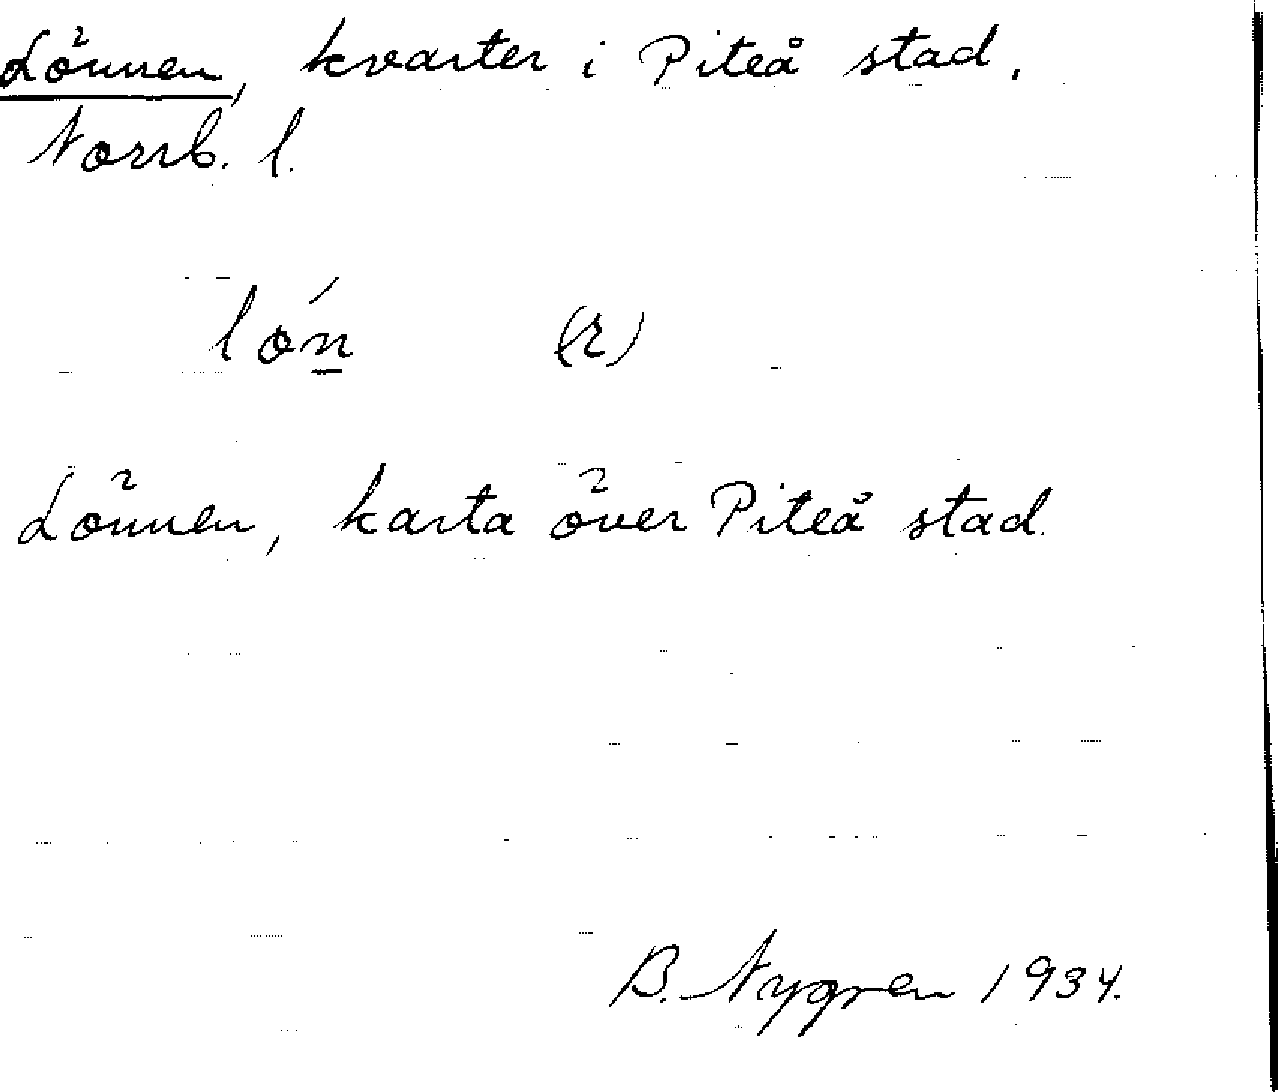 Lönnen, kvarter i Piteå stad.
Norrb. l.
lǿn (r)
Lönnen, karta över Piteå stad.
B. Nygren 1934.